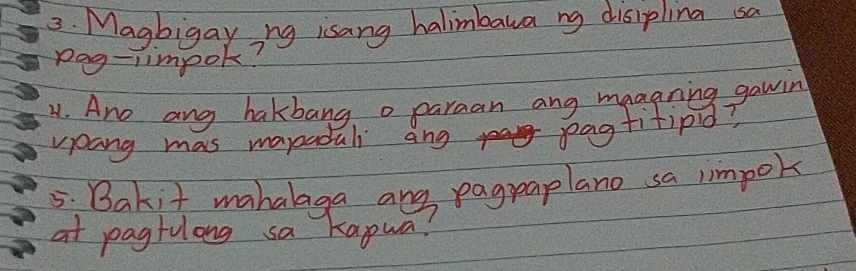 3. Magbigay ng isang halimbawa ng disiplina sa
pag-iimpok?
4. Ano ang hakbang o paraan ang maaaring gawin
upang mas mapadali ang pagtitipid?
5. Bakit mahalaga ang pagpaplano sa iimpok
at pagtulong sa kapwa?